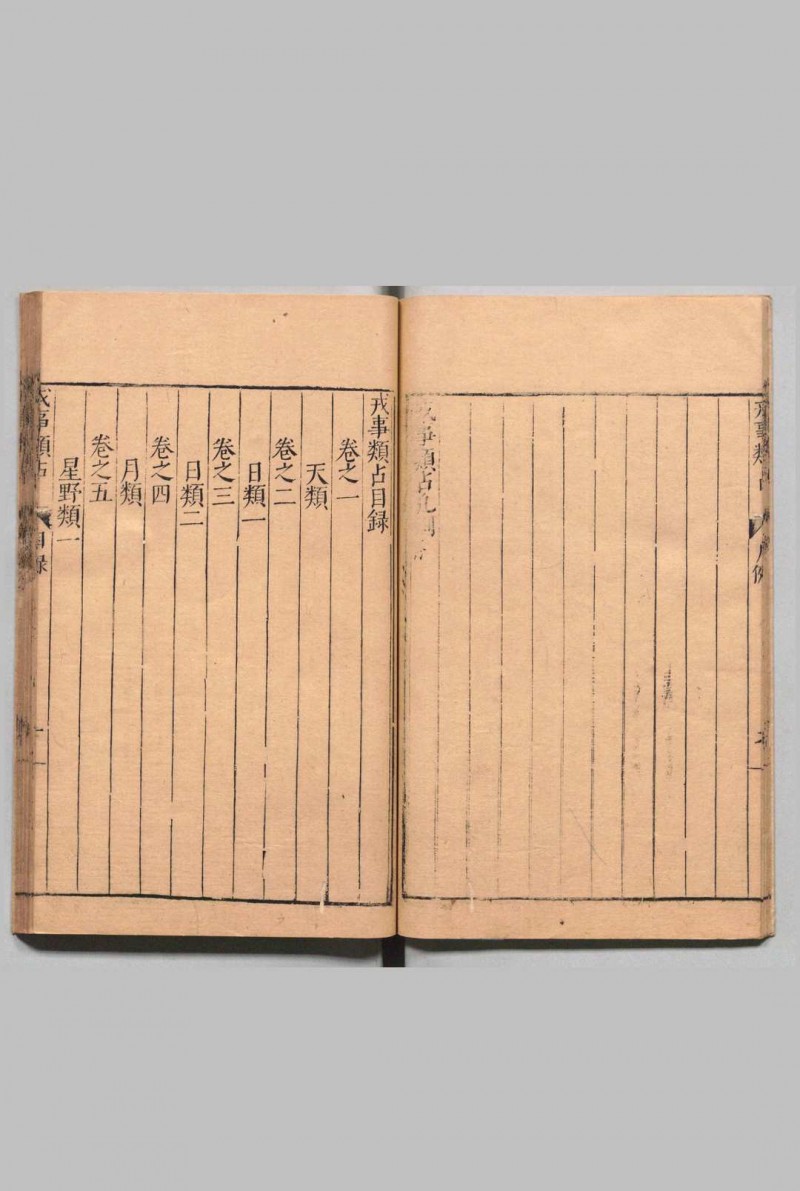 戎事類占
戎事類占凡例終
戎事類占目録
卷之一
天類
卷之二
日類一
卷之三
日類二
卷之四
月類
卷之五
星野類一
戎事類占
目録
一